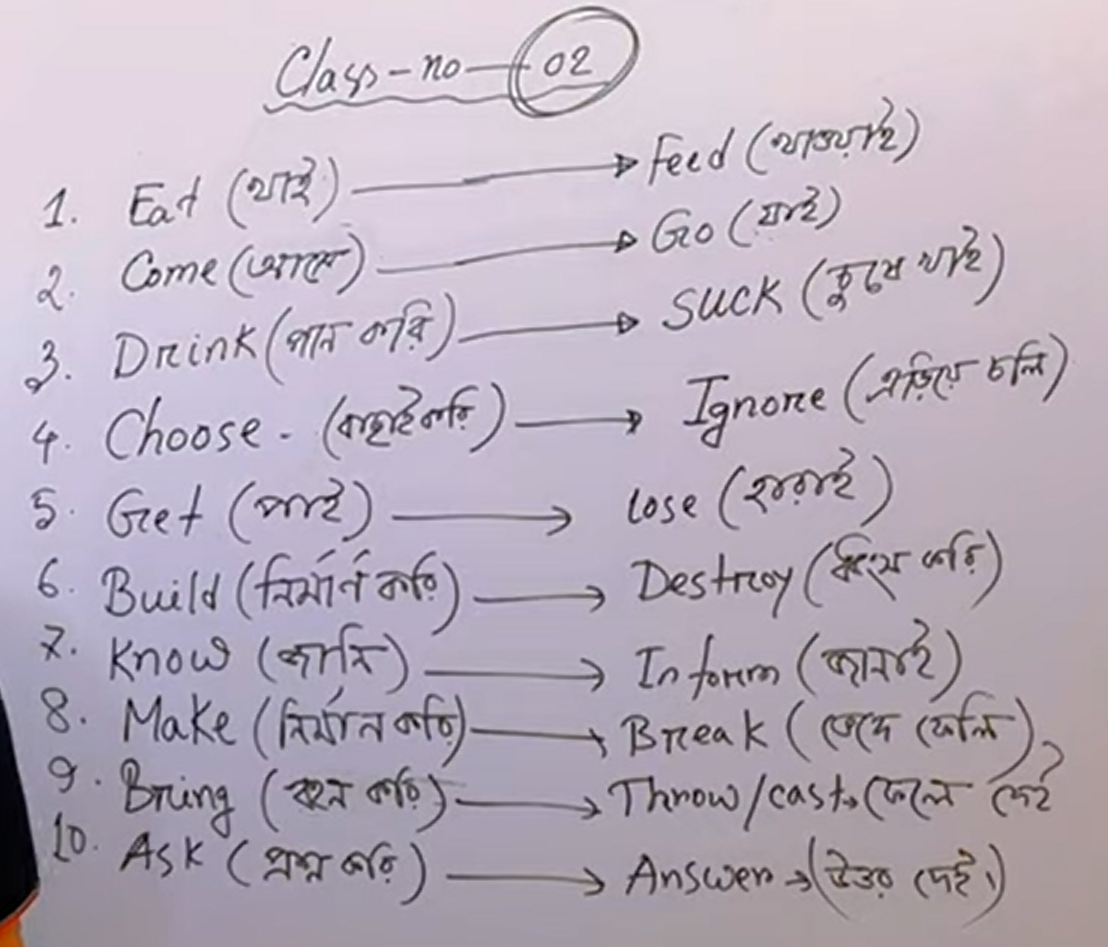 Class-no—02
1. Eat (খাই) → Feed (খাওয়াই)
2. Come (আসো) → Go (যাই)
3. Drink (পান করি) → Suck (চুষে খাই)
4. Choose - (বাছাই করি) → Ignore (এড়িয়ে চলি)
5. Get (পাই) → Lose (হারাই)
6. Build (নির্মার্ন করি) → Destroy (ধ্বংস করি)
7. Know (জানি) → Inform (জানাই)
8. Make (নির্মান করি) → Break (ভেঙ্গে ফেলি)
9. Bring (বহন করি) → Throw/cast → (ফেলে দেই)
10. Ask (প্রশ্ন করি) → Answer → (উত্তর দেই।)